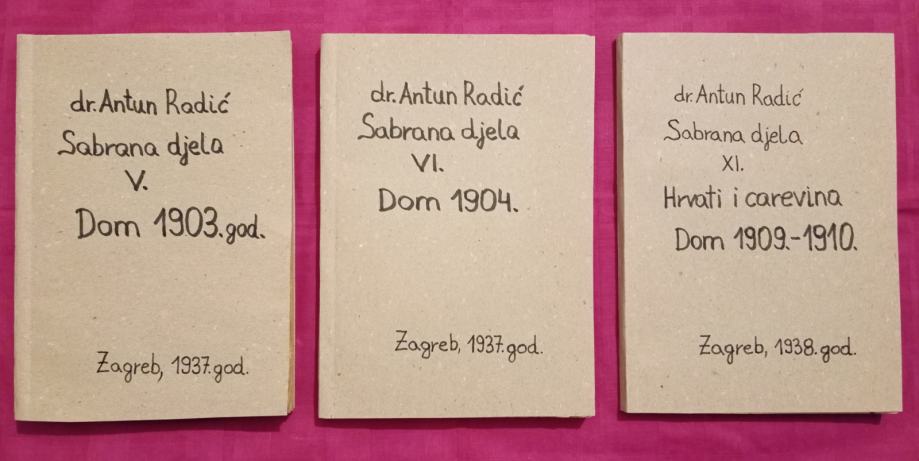 dr. Antun Radić
Sabrana djela
V.
Dom 1903. god.
Zagreb, 1937. god.
dr. Antun Radić
Sabrana djela
VI.
Dom 1904.
Zagreb, 1937. god.
dr. Antun Radić
Sabrana djela
XI.
Hrvati i carevina
Dom 1909.-1910.
Zagreb, 1938. god.